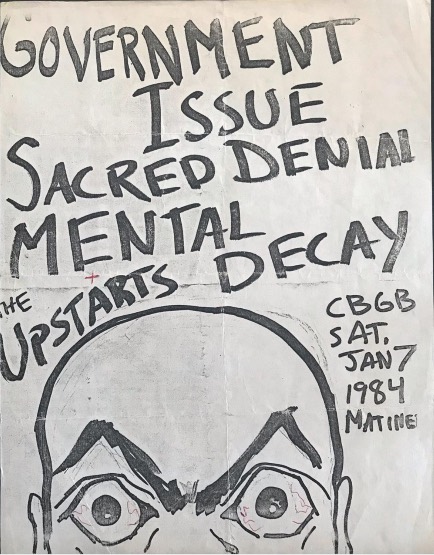 GOVERNMENT
ISSUE
SACRED DENIAL
MENTAL
DECAY
THE
UPSTARTS
CBGB
SAT.
JAN 7
1984
MATINEE